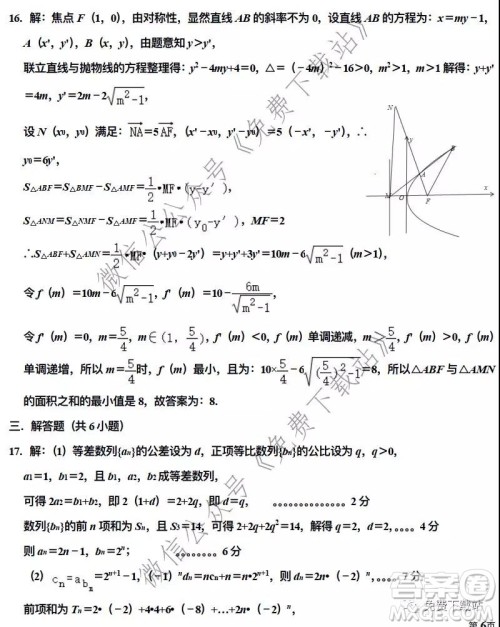 16. 解：焦点 F（1，0），由对称性，显然直线 AB 的斜率不为 0，设直线 AB 的方程为：x＝my﹣1，
A（x'，y'），B（x，y），由题意知 y＞y'，
联立直线与抛物线的方程整理得：y²﹣4my+4＝0，△＝（﹣4m）²﹣16＞0，m²＞1，m＞1 解得：y+y'
＝4m，y'＝2m﹣2√(m²-1)，
设 N（x₀，y₀）满足：NA→＝5AF→，（x'﹣x₀，y'﹣y₀）＝5（﹣x'，﹣y'），∴
y₀＝6y'，
S△ABF＝S△BMF﹣S△AMF＝1/2•MF•（y-y′），
S△ANM＝S△NMF﹣S△AMF＝1/2•MF•（y₀-y′），MF＝2
∴S△ABF+S△AMN＝1/2•MF•（y+y₀﹣2y'）＝y+y'+3y'＝10m﹣6√(m²-1)（m＞1），
令 f（m）＝10m﹣6√(m²-1)，f'（m）＝10﹣6m/√(m²-1)，
令 f'（m）＝0，m＝5/4，m∈（1，5/4），f'（m）＜0，f（m）单调递减，m＞5/4，f'（m）＞0，f（m）
单调递增，所以 m＝5/4时，f（m）最小，且为：10×5/4﹣6√((5/4)²-1)＝8，所以△ABF 与△AMN
的面积之和的最小值是 8，故答案为：8.
N
B
A
M
O
F
x
三．解答题（共 6 小题）
17. 解：（1）等差数列{aₙ}的公差设为 d，正项等比数列{bₙ}的公比设为 q，q＞0，
a₁＝1，b₁＝2，且 b₁，a₂，b₂ 成等差数列，
可得 2a₂＝b₁+b₂，即 2（1+d）＝2+2q，即 d＝q，。。。。。。。。。。。。。2 分
数列{bₙ}的前 n 项和为 Sₙ，且 S₃＝14，可得 2+2q+2q²＝14，解得 q＝2，d＝2，。。。。4 分
则 aₙ＝2n﹣1，bₙ＝2ⁿ；。。。。。。。。。。。6 分
（2）cₙ＝a_{bₙ}＝2ⁿ⁺¹﹣1，（﹣1）ⁿdₙ＝ncₙ+n＝n•2ⁿ⁺¹，则 dₙ＝2n•（﹣2）ⁿ，
前项和为 Tₙ＝2•（﹣2）+4•4+6•（﹣8）+…+2n•（﹣2）ⁿ，
微信公众号《免费下载站》
微信公众号《免费下载站》
答案圈
免费下载站
第 6页